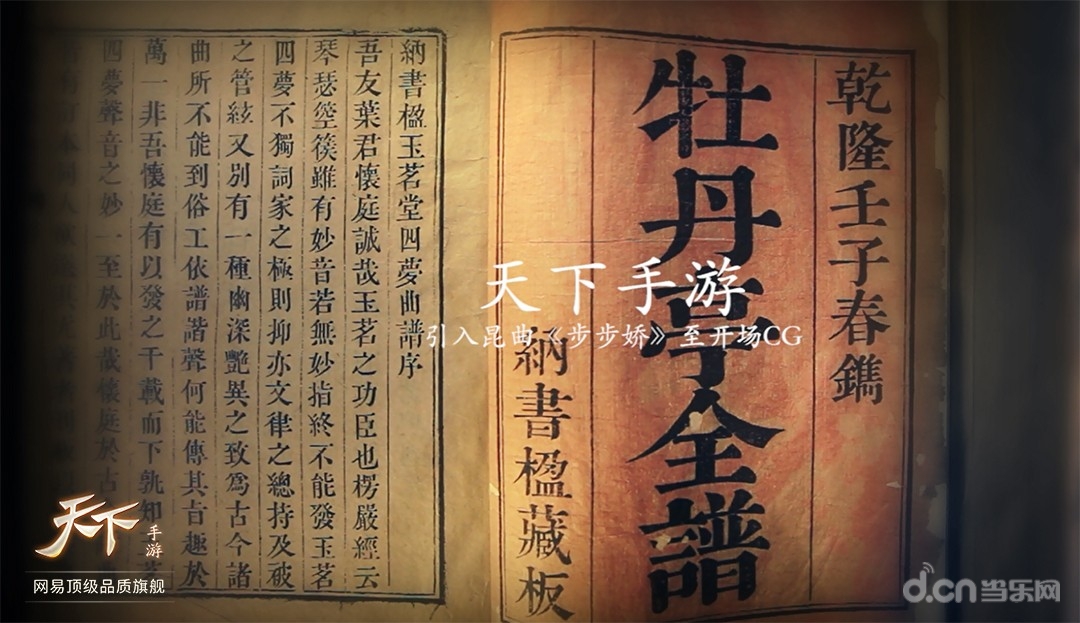 乾隆壬子春鐫
牡丹亭全譜
納書楹藏板
納書楹玉茗堂四夢曲譜序
吾友葉君懷庭誠哉玉茗之功臣也楞嚴經云
琴瑟箜篌雖有妙音若無妙指終不能發玉茗
四夢不獨詞家之極則抑亦文律之總持及被
之管絃又別有一種幽深艷異之致為古今諸
曲所不能到俗工依譜諧聲何能傳其旨趣於
萬一非吾懷庭有以發之千載而下孰知
四夢聲音之妙一至於此哉懷庭於古
天下手游
引入昆曲《步步娇》至开场CG
天下
手游
网易顶级品质旗舰
d.cn当乐网